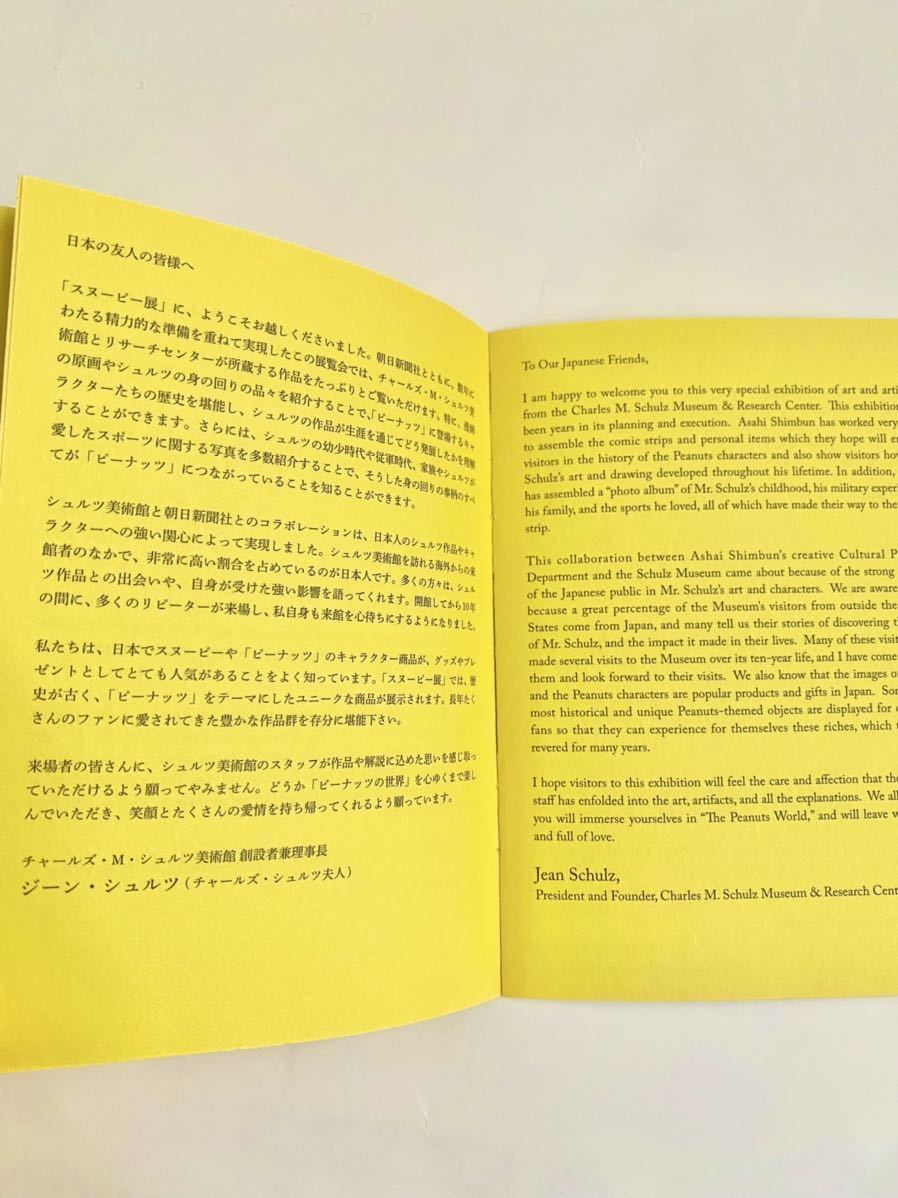 日本の友人の皆様へ
「スヌーピー展」に、ようこそお越しくださいました。朝日新聞社とともに、数年に
わたる精力的な準備を重ねて実現したこの展覧会では、チャールズ・M・シュルツ美
術館とリサーチセンターが所蔵する作品をたっぷりとご覧いただけます。特に、漫画
の原画やシュルツの身の回りの品々を紹介することで、「ピーナッツ」に登場するキャ
ラクターたちの歴史を堪能し、シュルツの作品が生涯を通じてどう発展したかを理解
することができます。さらには、シュルツの幼少時代や従軍時代、家族やシュルツが
愛したスポーツに関する写真を多数紹介することで、そうした身の回りの事柄のすべ
てが「ピーナッツ」につながっていることを知ることができます。
シュルツ美術館と朝日新聞社とのコラボレーションは、日本人のシュルツ作品やキャ
ラクターへの強い関心によって実現しました。シュルツ美術館を訪れる海外からの来
館者のなかで、非常に高い割合を占めているのが日本人です。多くの方々は、シュル
ツ作品との出会いや、自身が受けた強い影響を語ってくれます。開館してから10年
の間に、多くのリピーターが来場し、私自身も来館を心待ちにするようになりました。
私たちは、日本でスヌーピーや「ピーナッツ」のキャラクター商品が、グッズやプレ
ゼントとしてとても人気があることをよく知っています。「スヌーピー展」では、歴
史が古く、「ピーナッツ」をテーマにしたユニークな商品が展示されます。長年たく
さんのファンに愛されてきた豊かな作品群を存分に堪能下さい。
来場者の皆さんに、シュルツ美術館のスタッフが作品や解説に込めた思いを感じ取っ
ていただけるよう願ってやみません。どうか「ピーナッツの世界」を心ゆくまで楽し
んでいただき、笑顔とたくさんの愛情を持ち帰ってくれるよう願っています。
チャールズ・M・シュルツ美術館 創設者兼理事長
ジーン・シュルツ（チャールズ・シュルツ夫人）
To Our Japanese Friends,
I am happy to welcome you to this very special exhibition of art and arti
from the Charles M. Schulz Museum & Research Center. This exhibition
been years in its planning and execution. Asahi Shimbun has worked very
to assemble the comic strips and personal items which they hope will en
visitors in the history of the Peanuts characters and also show visitors how
Schulz's art and drawing developed throughout his lifetime. In addition,
has assembled a “photo album” of Mr. Schulz's childhood, his military experi
his family, and the sports he loved, all of which have made their way to the
strip.
This collaboration between Ashai Shimbun's creative Cultural P
Department and the Schulz Museum came about because of the strong
of the Japanese public in Mr. Schulz's art and characters. We are aware
because a great percentage of the Museum's visitors from outside the
States come from Japan, and many tell us their stories of discovering th
of Mr. Schulz, and the impact it made in their lives. Many of these visit
made several visits to the Museum over its ten-year life, and I have come
them and look forward to their visits. We also know that the images o
and the Peanuts characters are popular products and gifts in Japan. Som
most historical and unique Peanuts-themed objects are displayed for
fans so that they can experience for themselves these riches, which
revered for many years.
I hope visitors to this exhibition will feel the care and affection that the
staff has enfolded into the art, artifacts, and all the explanations. We all
you will immerse yourselves in “The Peanuts World,” and will leave w
and full of love.
Jean Schulz,
President and Founder, Charles M. Schulz Museum & Research Cent